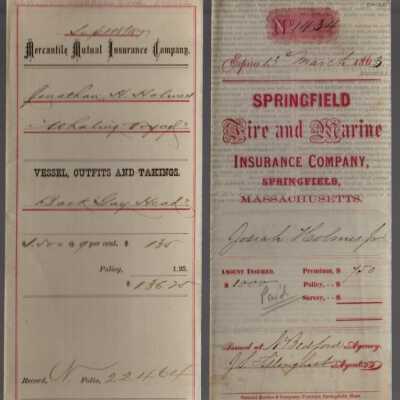 Mercantile Mutual Insurance Company,
Jonathan H. Holmes
Whaling Voyage
VESSEL, OUTFITS AND TAKINGS.
Bark Gay Head
$1500 @ 9 per cent. $ 135
Policy, 1.25
$ 136.25
Record, N Folio, 22464
No 1434
Expires 1st March 1863
SPRINGFIELD
Fire and Marine
INSURANCE COMPANY,
SPRINGFIELD,
MASSACHUSETTS.
Josiah Holmes Jr
AMOUNT INSURED. Premium, $ 7.50
$ 1000 Policy, $
Paid Survey, $
Issued at N. Bedford Agency.
Agent.